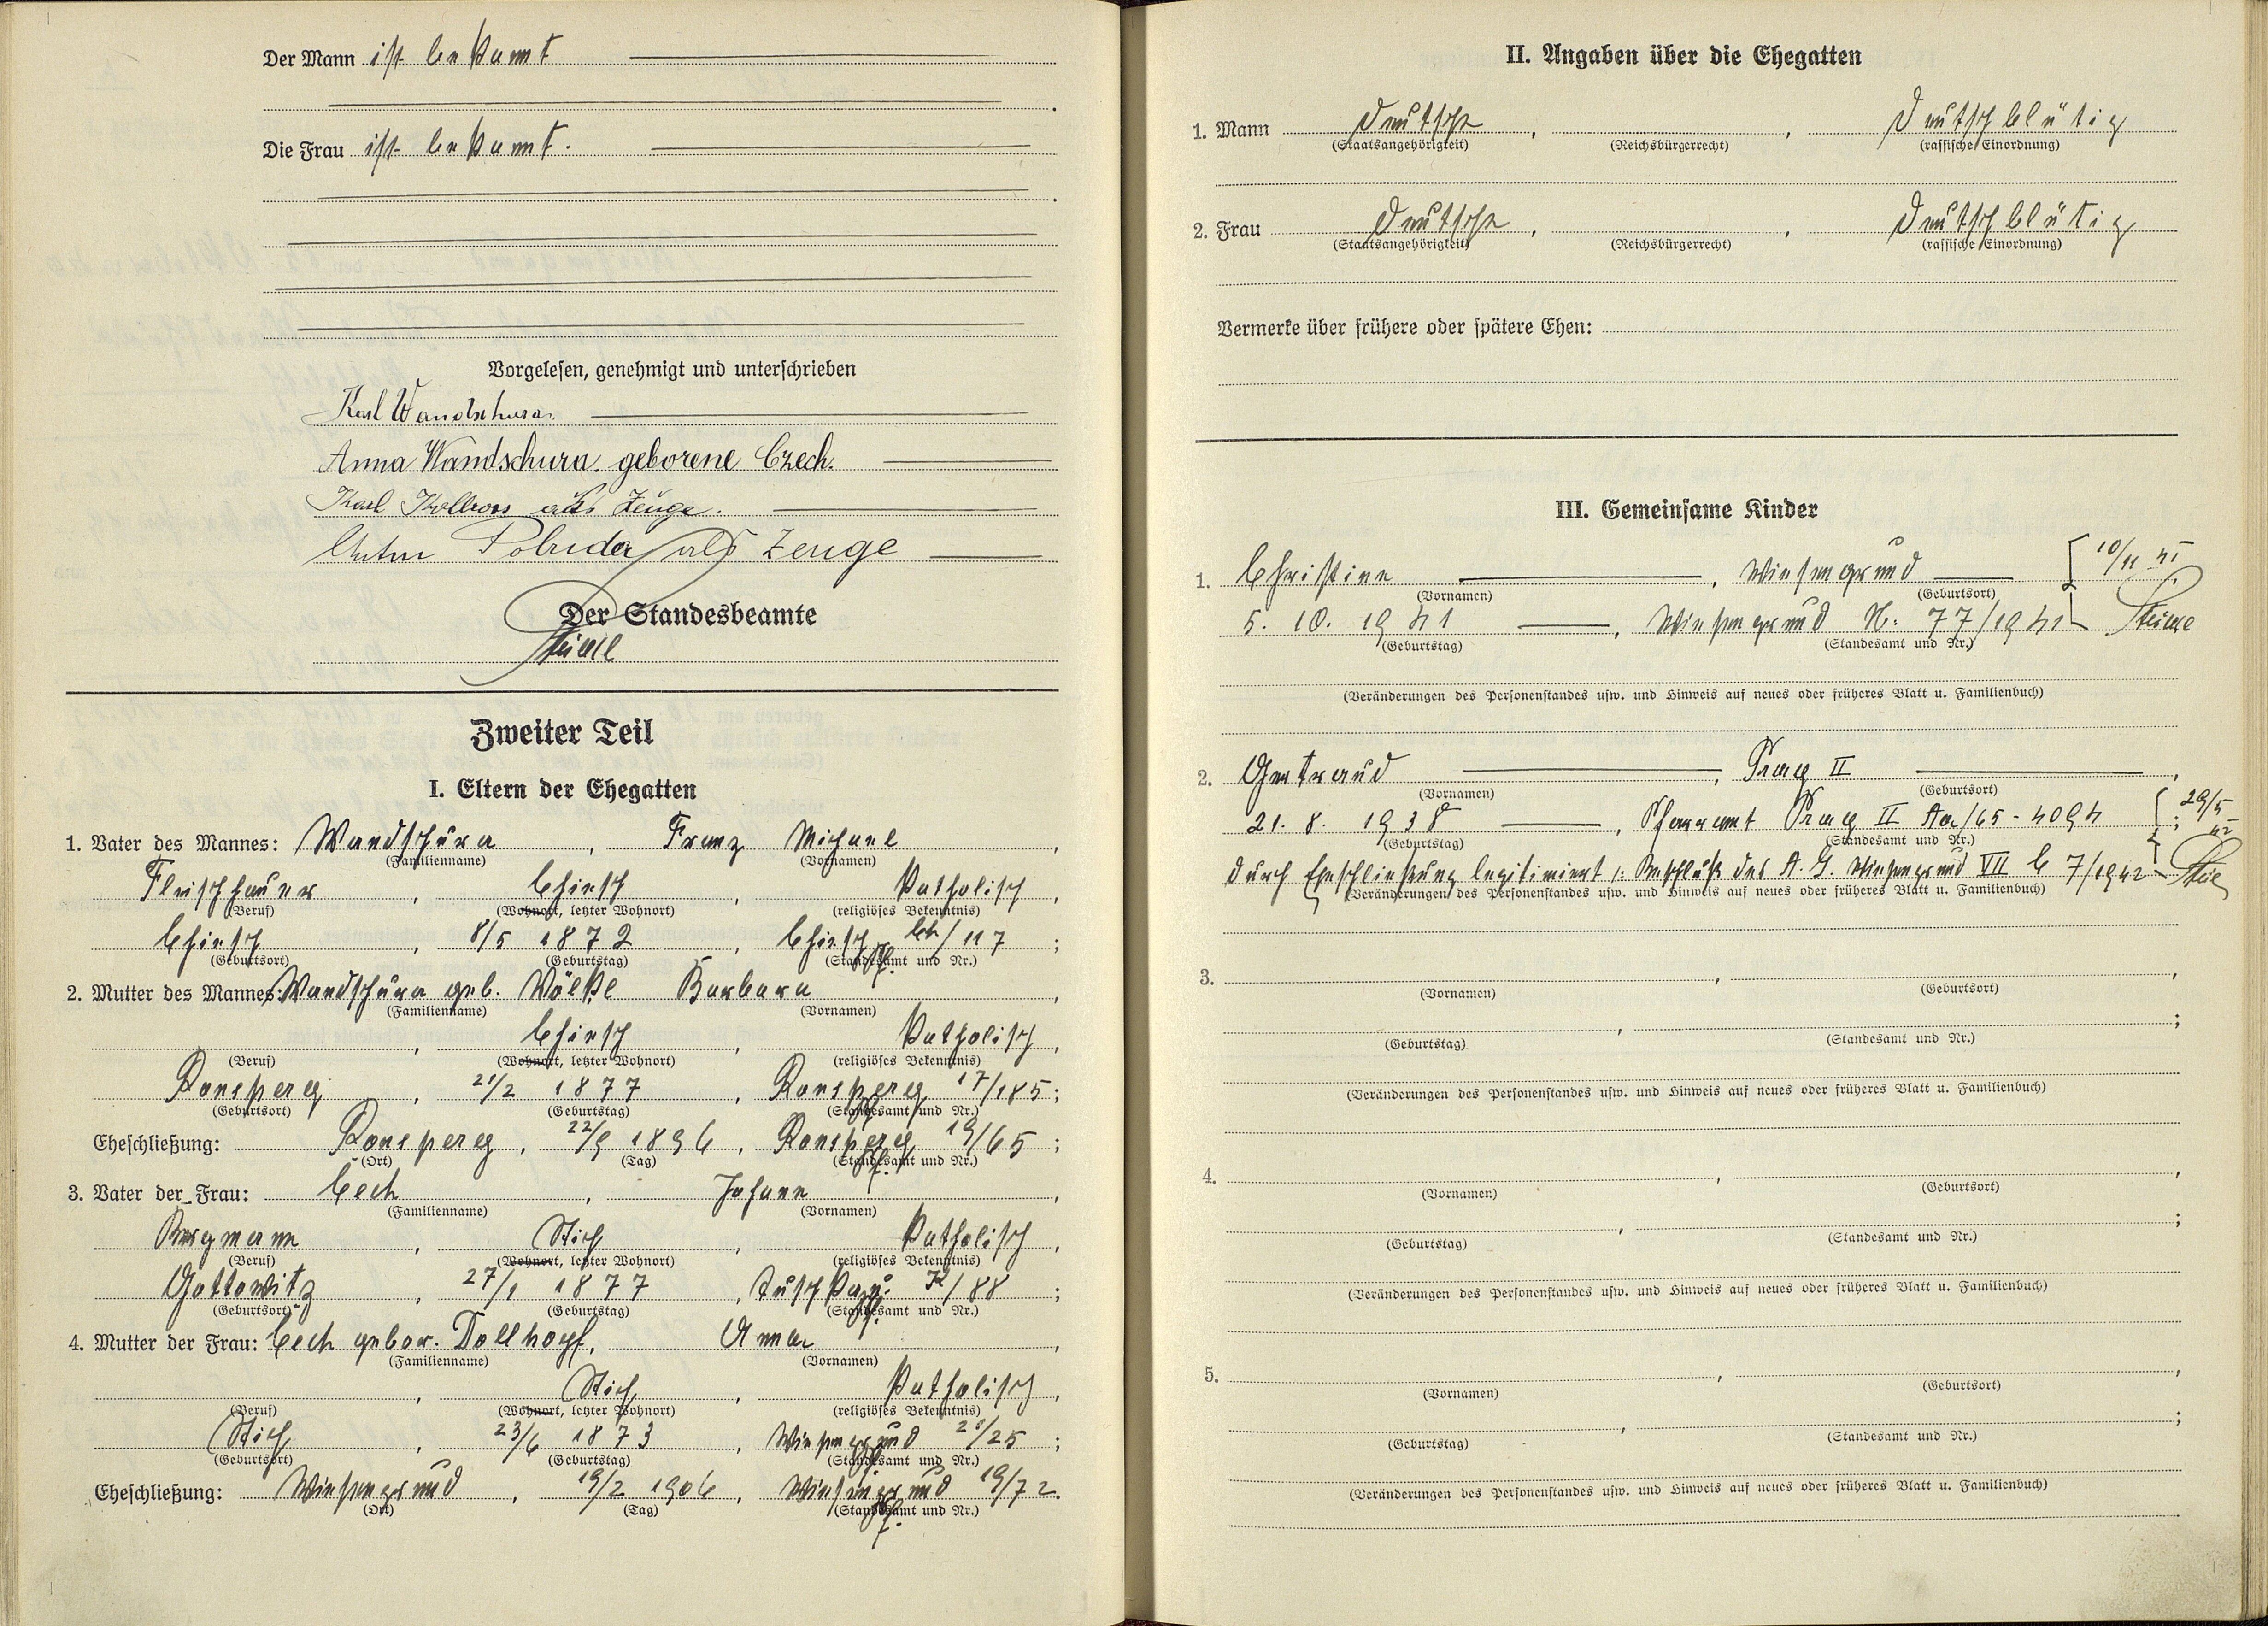 Der Mann ist bekannt
Die Frau ist bekannt.
Vorgelesen, genehmigt und unterschrieben
Karl Wandschura
Anna Wandschura. geborene Czech.
Karl als Zeuge.
Anton Pobuda als Zeuge
Der Standesbeamte
Zweiter Teil
I. Eltern der Ehegatten
1. Vater des Mannes: Wandschura, Franz Michael,
(Familienname) (Vornamen)
Fleischhauer, Chiesch, katholisch,
(Beruf) (Wohnort, letzter Wohnort) (religiöses Bekenntnis)
Chiesch, 8/5 1872, Chiesch /117;
(Geburtsort) (Geburtstag) (Standesamt und Nr.)
2. Mutter des Mannes: Wandschura geb. Wölkl Barbara,
(Familienname) (Vornamen)
, Chiesch, katholisch,
(Beruf) (Wohnort, letzter Wohnort) (religiöses Bekenntnis)
Ronsperg, 21/2 1877, Ronsperg 17/185;
(Geburtsort) (Geburtstag) (Standesamt und Nr.)
Eheschließung: Ronsperg, 22/9 1896, Ronsperg 19/65;
(Ort) (Tag) (Standesamt und Nr.)
3. Vater der Frau: Cech, Johann,
(Familienname) (Vornamen)
Bergmann, Stich, katholisch,
(Beruf) (Wohnort, letzter Wohnort) (religiöses Bekenntnis)
Gottowitz, 27/1 1877, Tuschkau /88;
(Geburtsort) (Geburtstag) (Standesamt und Nr.)
4. Mutter der Frau: Cech gebor. Dollhopf, Anna,
(Familienname) (Vornamen)
, Stich, katholisch,
(Beruf) (Wohnort, letzter Wohnort) (religiöses Bekenntnis)
Stich, 23/6 1873, Wiesengrund 21/25;
(Geburtsort) (Geburtstag) (Standesamt und Nr.)
Eheschließung: Wiesengrund, 19/2 1906, Wiesengrund 19/72.
(Ort) (Tag) (Standesamt und Nr.)
II. Angaben über die Ehegatten
1. Mann Deutsche, , Deutschblütig
(Staatsangehörigkeit) (Reichsbürgerrecht) (rassische Einordnung)
2. Frau Deutsche, , Deutschblütig
(Staatsangehörigkeit) (Reichsbürgerrecht) (rassische Einordnung)
Vermerke über frühere oder spätere Ehen:
III. Gemeinsame Kinder
1. Christine, Wiesengrund 10/11 41
(Vornamen) (Geburtsort)
5. 10. 1941, Wiesengrund N: 77/1941
(Geburtstag) (Standesamt und Nr.)
(Veränderungen des Personenstandes usw. und Hinweis auf neues oder früheres Blatt u. Familienbuch)
2. Gertraud, Prag II,
(Vornamen) (Geburtsort)
21. 8. 1938, Pfarramt Prag II Aa/65-4094; 29/5 42
(Geburtstag) (Standesamt und Nr.)
durch Eheschliessung legitimiert /: Beschluß des A. G. Wiesengrund VII C 7/1942
(Veränderungen des Personenstandes usw. und Hinweis auf neues oder früheres Blatt u. Familienbuch)
3. , ,
(Vornamen) (Geburtsort)
, ;
(Geburtstag) (Standesamt und Nr.)
(Veränderungen des Personenstandes usw. und Hinweis auf neues oder früheres Blatt u. Familienbuch)
4. , ,
(Vornamen) (Geburtsort)
, ;
(Geburtstag) (Standesamt und Nr.)
(Veränderungen des Personenstandes usw. und Hinweis auf neues oder früheres Blatt u. Familienbuch)
5. , ,
(Vornamen) (Geburtsort)
, ;
(Geburtstag) (Standesamt und Nr.)
(Veränderungen des Personenstandes usw. und Hinweis auf neues oder früheres Blatt u. Familienbuch)